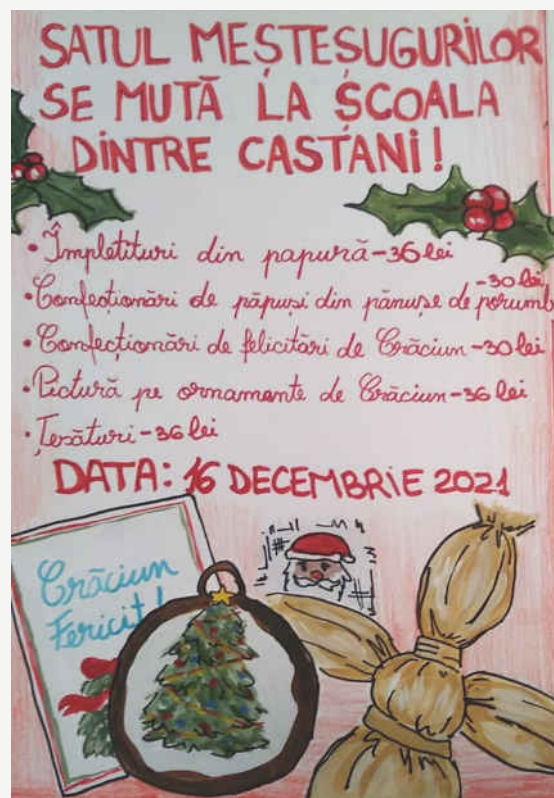 SATUL MEȘTEȘUGURILOR
SE MUTĂ LA ȘCOALA
DINTRE CASTANI!
• Împletituri din papură - 36 lei
• Confecționări de păpuși din pănușe de porumb - 30 lei
• Confecționări de felicitări de Crăciun - 30 lei
• Pictură pe ornamente de Crăciun - 36 lei
• Țesături - 36 lei
DATA: 16 DECEMBRIE 2021
Crăciun
Fericit!